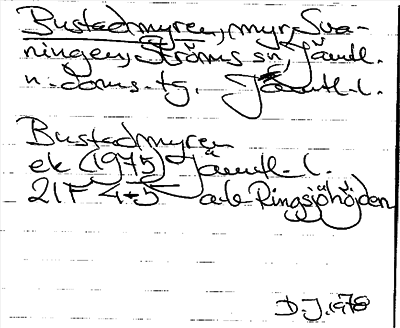 Bustadmyren, myr, Sva-
ningen, Ströms sn, Jämtl.
n. doms. tg. Jämtl. l.
Bustadmyren
ek (1975) Jämtl. l.
21F 4-5 a-b Ringsjöhöjden
D.J. 1978